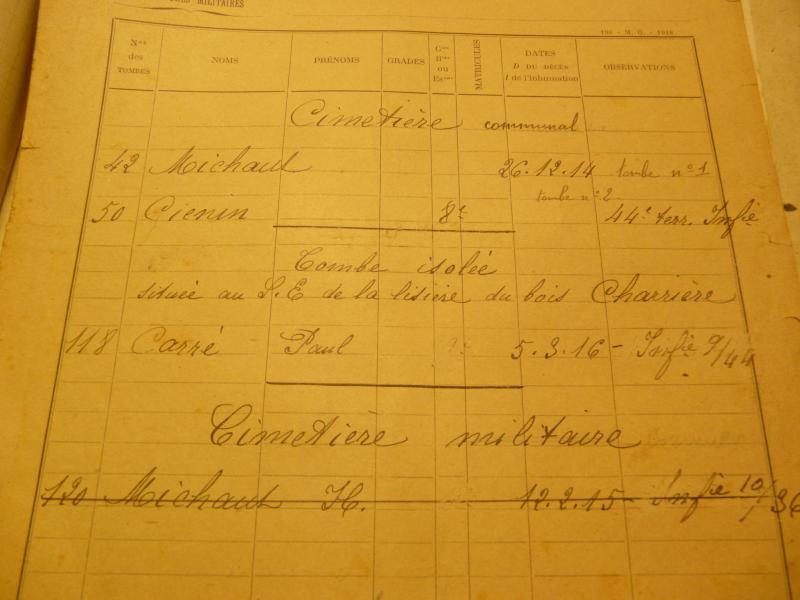 MILITAIRES
196 - M. G. - 1918
Nos des TOMBES NOMS PRÉNOMS GRADES Cies Bies ou Esons MATRICULES DATES D DU DÉCÈS I de l'inhumation OBSERVATIONS
Cimetière communal
42 Michaut 26.12.14 tombe no 1
tombe no 2
50 Cienin 8e 44e terr. Infie
Tombe isolée
située au S.E de la lisière du bois Charrière
118 Carré Paul 5.3.16 - Infie 9/44
Cimetière militaire
120 Michaut H. 12.2.15 - Infie 10/36